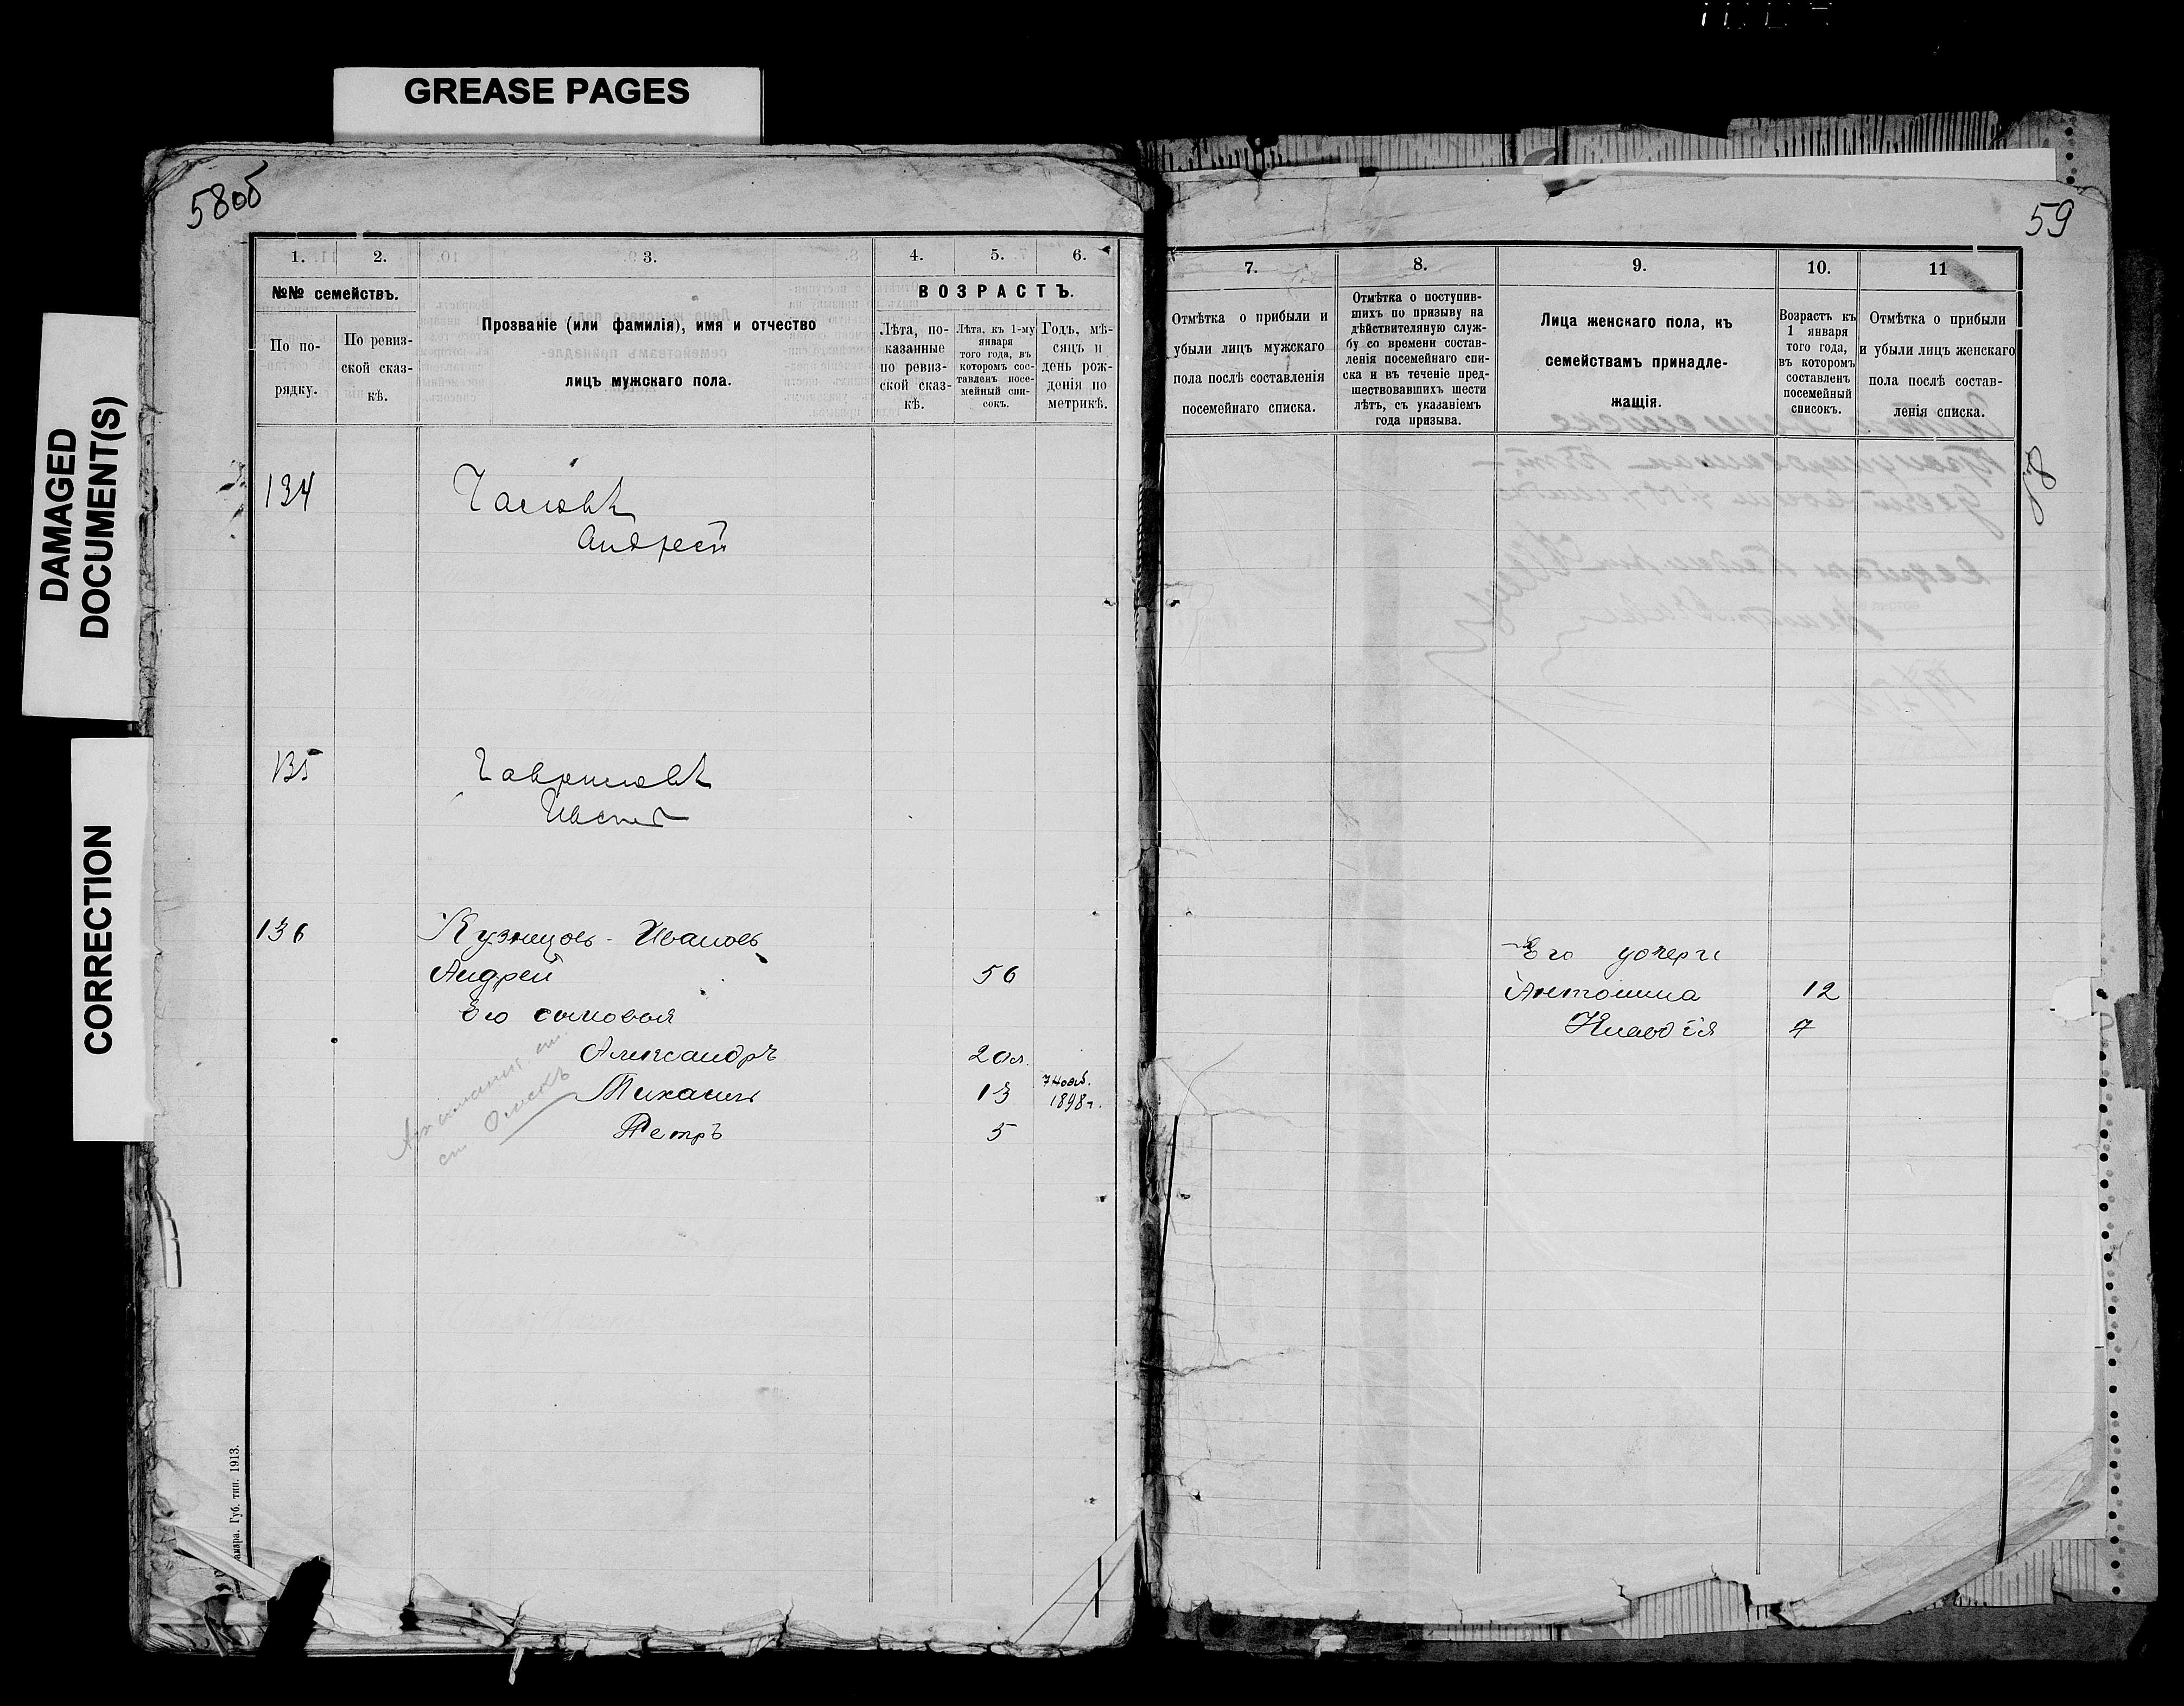 GREASE PAGES
DAMAGED
DOCUMENT(S)
CORRECTION
58об
1. 2. 3. 4. 5. 6.
№№ семействъ.
По по-
рядку.
По ревиз-
ской сказ-
кѣ.
Прозваніе (или фамилія), имя и отчество
лицъ мужскаго пола.
ВОЗРАСТЪ.
Лѣта, по-
казанные
по ревиз-
ской сказ-
кѣ.
Лѣта, къ 1-му
января
того года, въ
которомъ сос-
тавленъ посе-
мейный спи-
сокъ.
Годъ, мѣ-
сяцъ и
день рож-
денія по
метрикѣ.
134
Андрей
135 Гавриловъ
136 Кузнецовъ - Ивановъ
Андрей 56
Его сыновья
Александръ 20л.
Михаилъ 13 1898г.
Петръ 5
ст. Омскъ
Губ. тип. 1913.
59
7. 8. 9. 10. 11
Отмѣтка о прибыли и
убыли лицъ мужскаго
пола послѣ составленія
посемейнаго списка.
Отмѣтка о поступив-
шихъ по призыву на
дѣйствителяную служ-
бу со времени состав-
ленія посемейнаго спи-
ска и въ теченіе пред-
шествовавшихъ шести
лѣтъ, съ указаніемъ
года призыва.
Лица женскаго пола, къ
семействамъ принадле-
жащія.
Возрастъ къ
1 января
того года,
въ которомъ
составленъ
посемейный
списокъ.
Отмѣтка о прибыли
и убыли лицъ женскаго
пола послѣ состав-
ленія списка.
Его дочери
Антонина 12
Клавдія 7